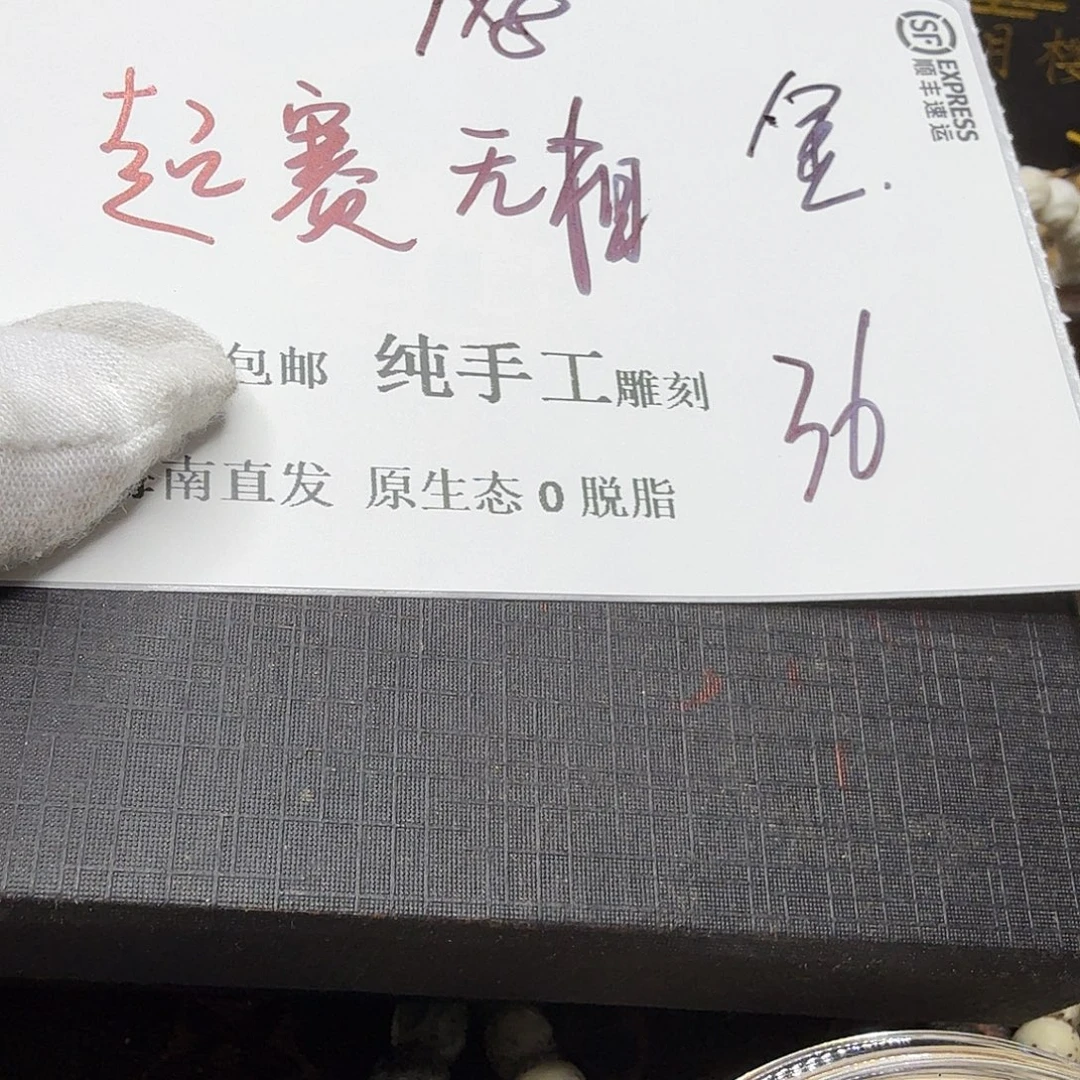 SF EXPRESS
顺丰速运
起赛 无相
包邮 纯手工雕刻
36
南直发 原生态0脱脂